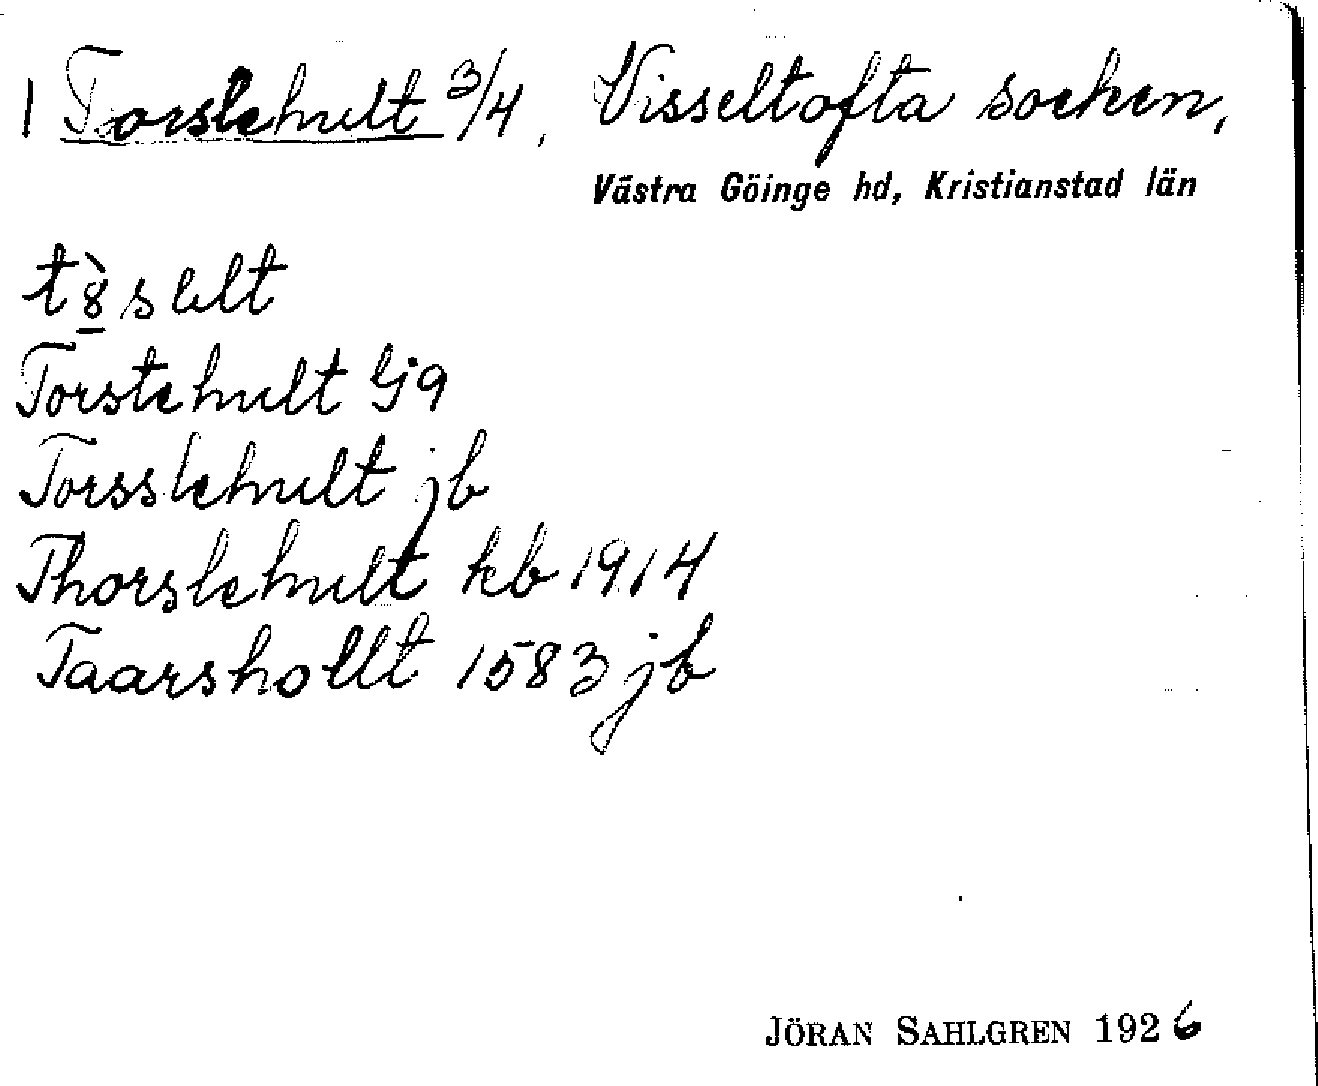 1 Torslehult 3/4, Visseltofta socken,
Västra Göinge hd, Kristianstad län
t8̱̀slelt
Torstehult Gj9
Torsslehult jb
Thorslehult kb 1914
Taarshollt 1583 jb
JÖRAN SAHLGREN 1926